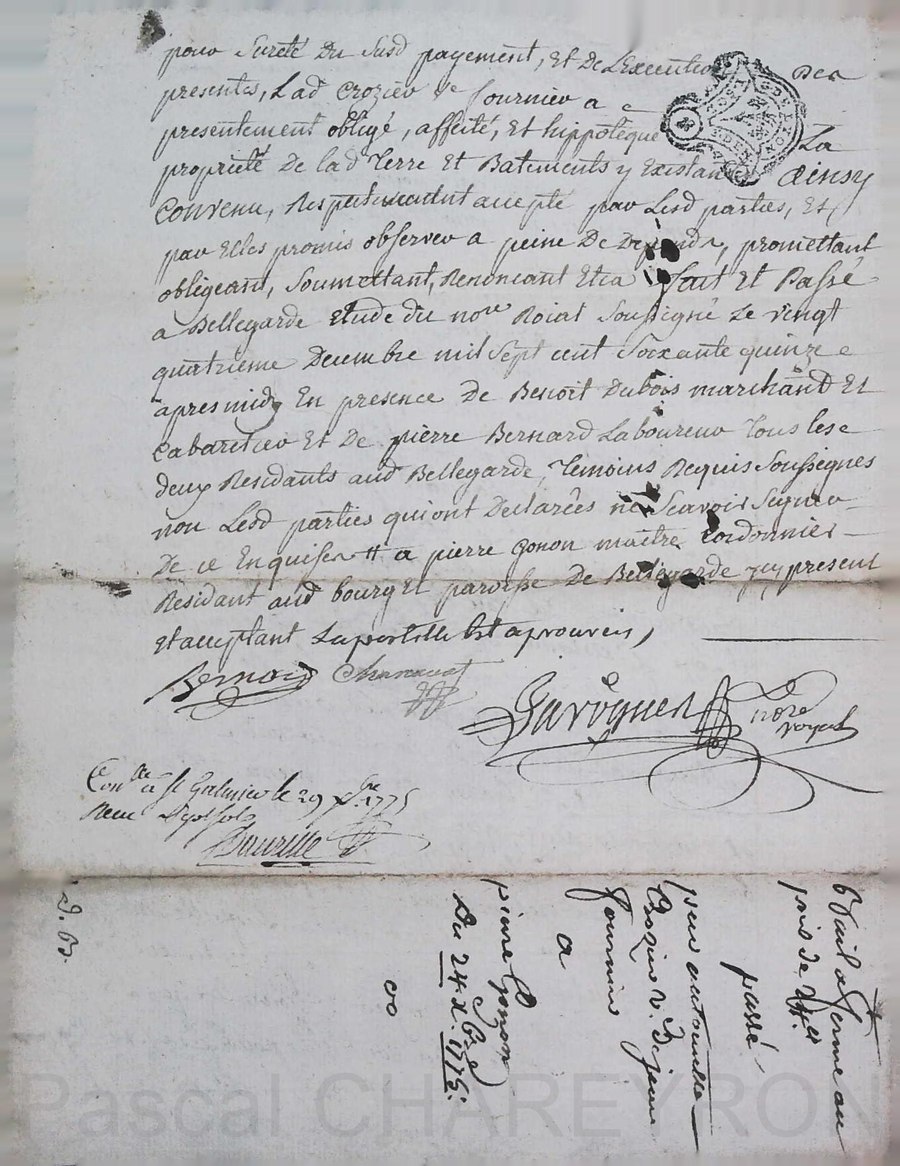 pour Sureté Du Susd payement, Et De L'Execution Des
presentes, Lad Crozier ve fournier a
presentement obligé, affecté, Et hippotéqué La
propriété De lad Terre Et Batiments y Existans ainsy
Convenu, Respectivement accepté par Lesd parties, Et
par Elles promis observer a peine De Depends, promettant
obligeant, Soumettant, Renoncant Etca fait Et Passé
a Bellegarde Etude du nore Roial Soussigné Le vingt
quatrieme Decembre mil Sept cent Soixante quinze
apres midy En presence De Benoit Dubois marchand Et
Cabaretier Et De pierre Bernard Laboureur Tous les
deux Residants aud Bellegarde, Temoins Requis Soussignes
non Lesd parties qui ont Declarées ne Scavoir Signer
De ce Enquises # a pierre gonon maitre Cordonnier
Residant aud bourg Et paroisse De Bellegarde icy present
Et acceptant La postille Est aprouveis,
Bernard
nore royal
Conlle a st Galmier le 29 Xbre 1775
Bail a ferme au
prix de
passé
par
Crozier v. De jean
fournier
a
pierre Gonon
Du 24 Xbre 1775.